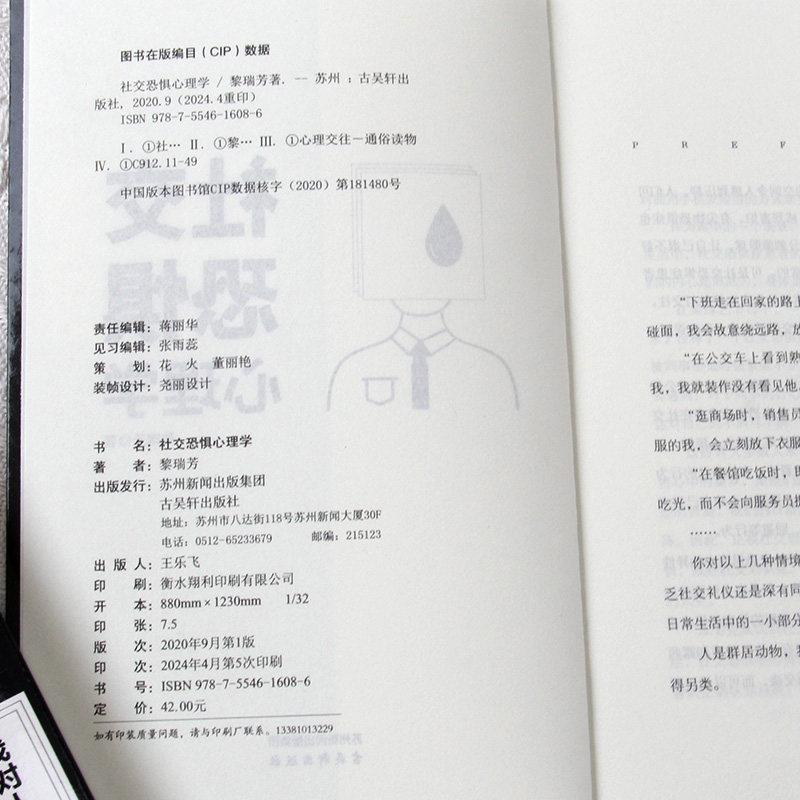 图书在版编目(CIP)数据
社交恐惧心理学 / 黎瑞芳著. -- 苏州 : 古吴轩出
版社, 2020.9 (2024.4重印)
ISBN 978-7-5546-1608-6
Ⅰ. ①社… Ⅱ. ①黎… Ⅲ. ①心理交往－通俗读物
Ⅳ. ①C912.11-49
中国版本图书馆CIP数据核字（2020）第181480号
责任编辑：蒋丽华
见习编辑：张雨蕊
策 划：花 火 董丽艳
装帧设计：尧丽设计
书 名：社交恐惧心理学
著 者：黎瑞芳
出版发行：苏州新闻出版集团
古吴轩出版社
地址：苏州市八达街118号苏州新闻大厦30F
电话：0512-65233679 邮编：215123
出 版 人：王乐飞
印 刷：衡水翔利印刷有限公司
开 本：880mm×1230mm 1/32
印 张：7.5
版 次：2020年9月第1版
印 次：2024年4月第5次印刷
书 号：ISBN 978-7-5546-1608-6
定 价：42.00元
如有印装质量问题，请与印刷厂联系。13381013229
P R E F
“下班走在回家的路上
碰面，我会故意绕远路，
“在公交车上看到熟
我，我就装作没有看见他
“逛商场时，销售员
服的我，会立刻放下衣服
“在餐馆吃饭时，
吃光，而不会向服务员
……
你对以上几种情境
乏社交礼仪还是深有同
日常生活中的一小部分
人是群居动物，
得另类。
对